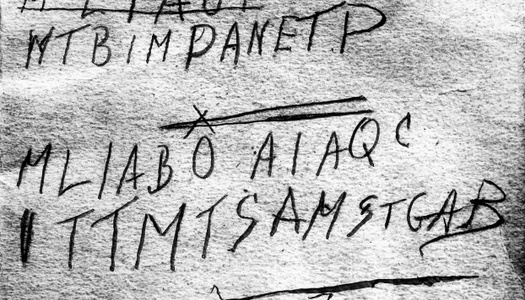 WTBIMPANETP
MLIABO AIAQC
ITTMTSAMSTGAB